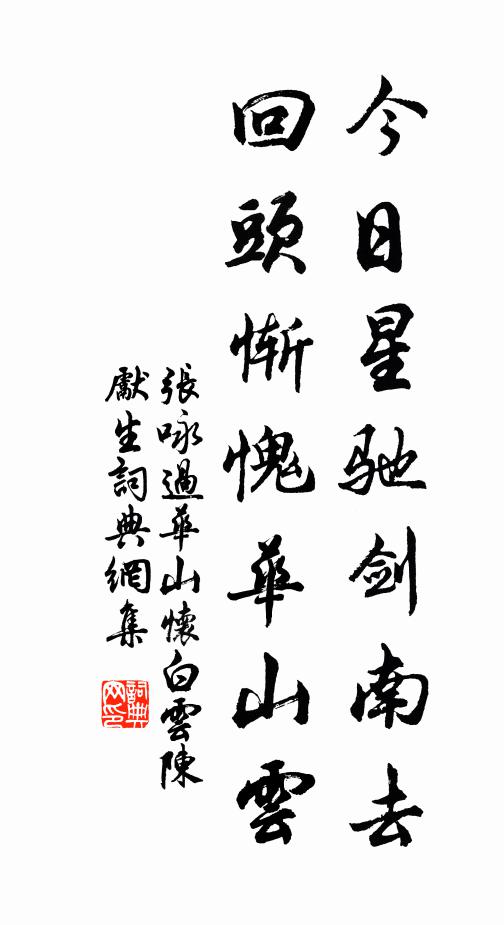 今日星驰劍南去
回頭慚愧華山雲
張咏過華山懷白雲陳
獻生詞典網集
詞典
网印